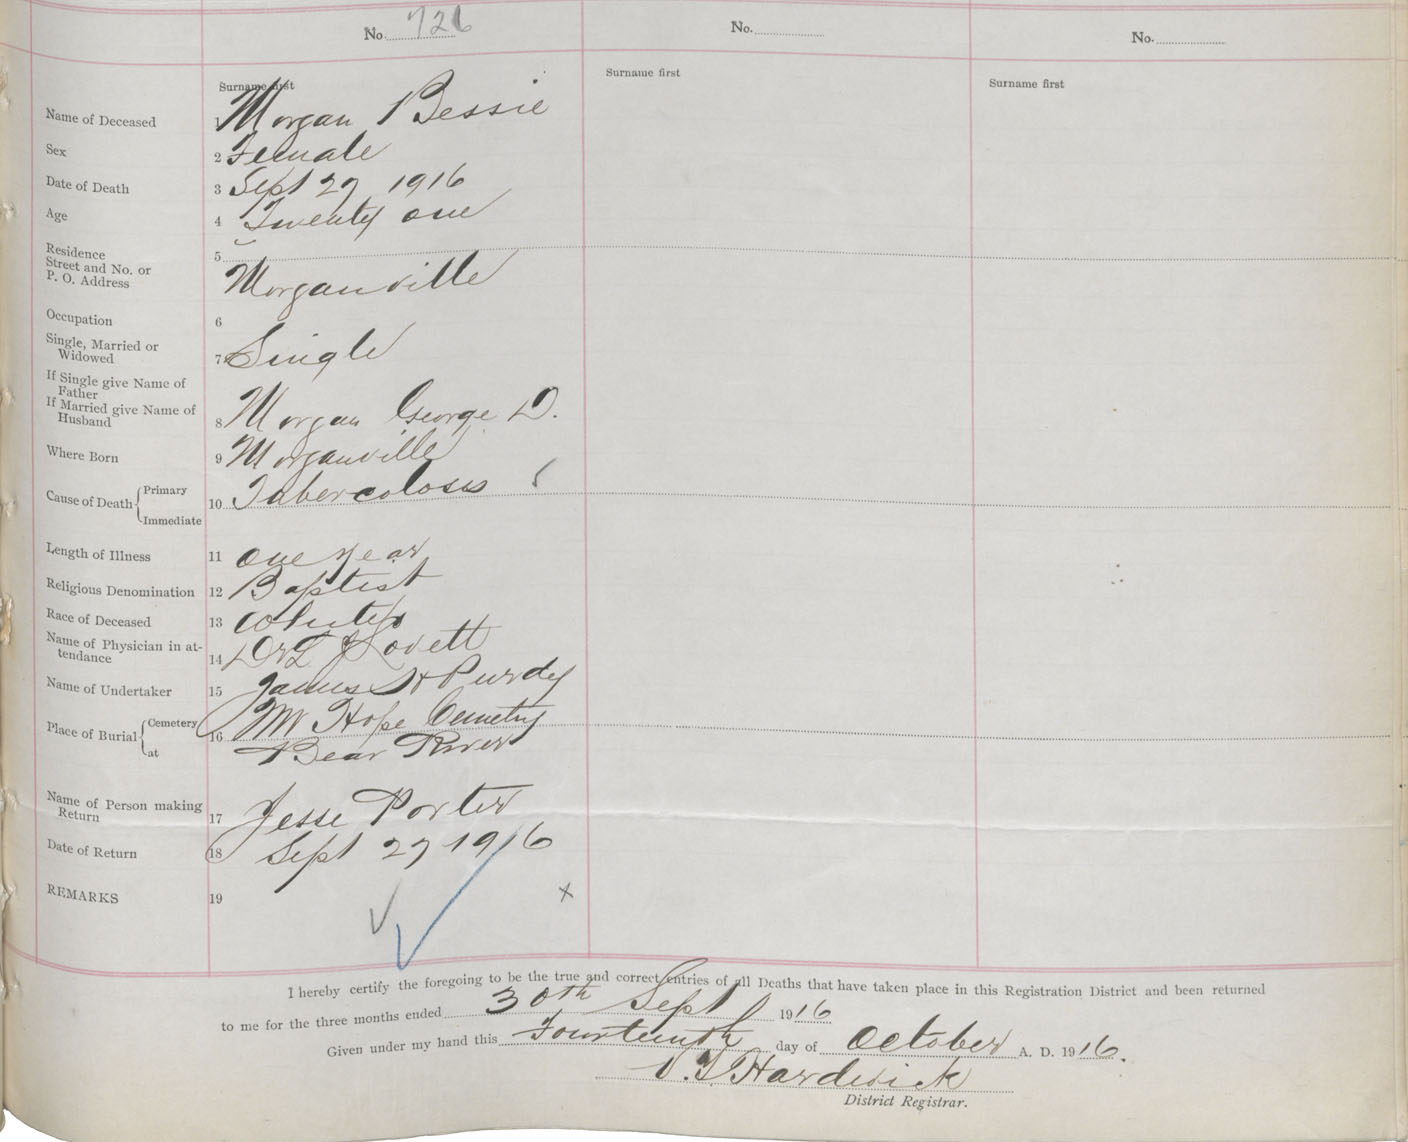 No. 726
No.
No.
Surname first
Surname first
Surname first
Name of Deceased 1 Morgan Bessie
Sex 2 Female
Date of Death 3 Sept 27 1916
Age 4 Twenty one
Residence
Street and No. or
P. O. Address 5 Morganville
Occupation 6
Single, Married or
Widowed 7 Single
If Single give Name of
Father
If Married give Name of
Husband 8 Morgan George D.
Where Born 9 Morganville
Cause of Death { Primary
Immediate 10 Tubercolosis
Length of Illness 11 one year
Religious Denomination 12 Baptist
Race of Deceased 13 White
Name of Physician in at-
tendance 14 Dr L J Lovett
Name of Undertaker 15 James H Purdy
Place of Burial { Cemetery 16 Mt Hope Cemetry
at Bear River
Name of Person making
Return 17 Jesse Porter
Date of Return 18 Sept 27 1916
REMARKS 19
x
I hereby certify the foregoing to be the true and correct entries of all Deaths that have taken place in this Registration District and been returned
to me for the three months ended 30th Sept 1916
Given under my hand this Fourteenth day of October A. D. 1916.
Hardwick
District Registrar.